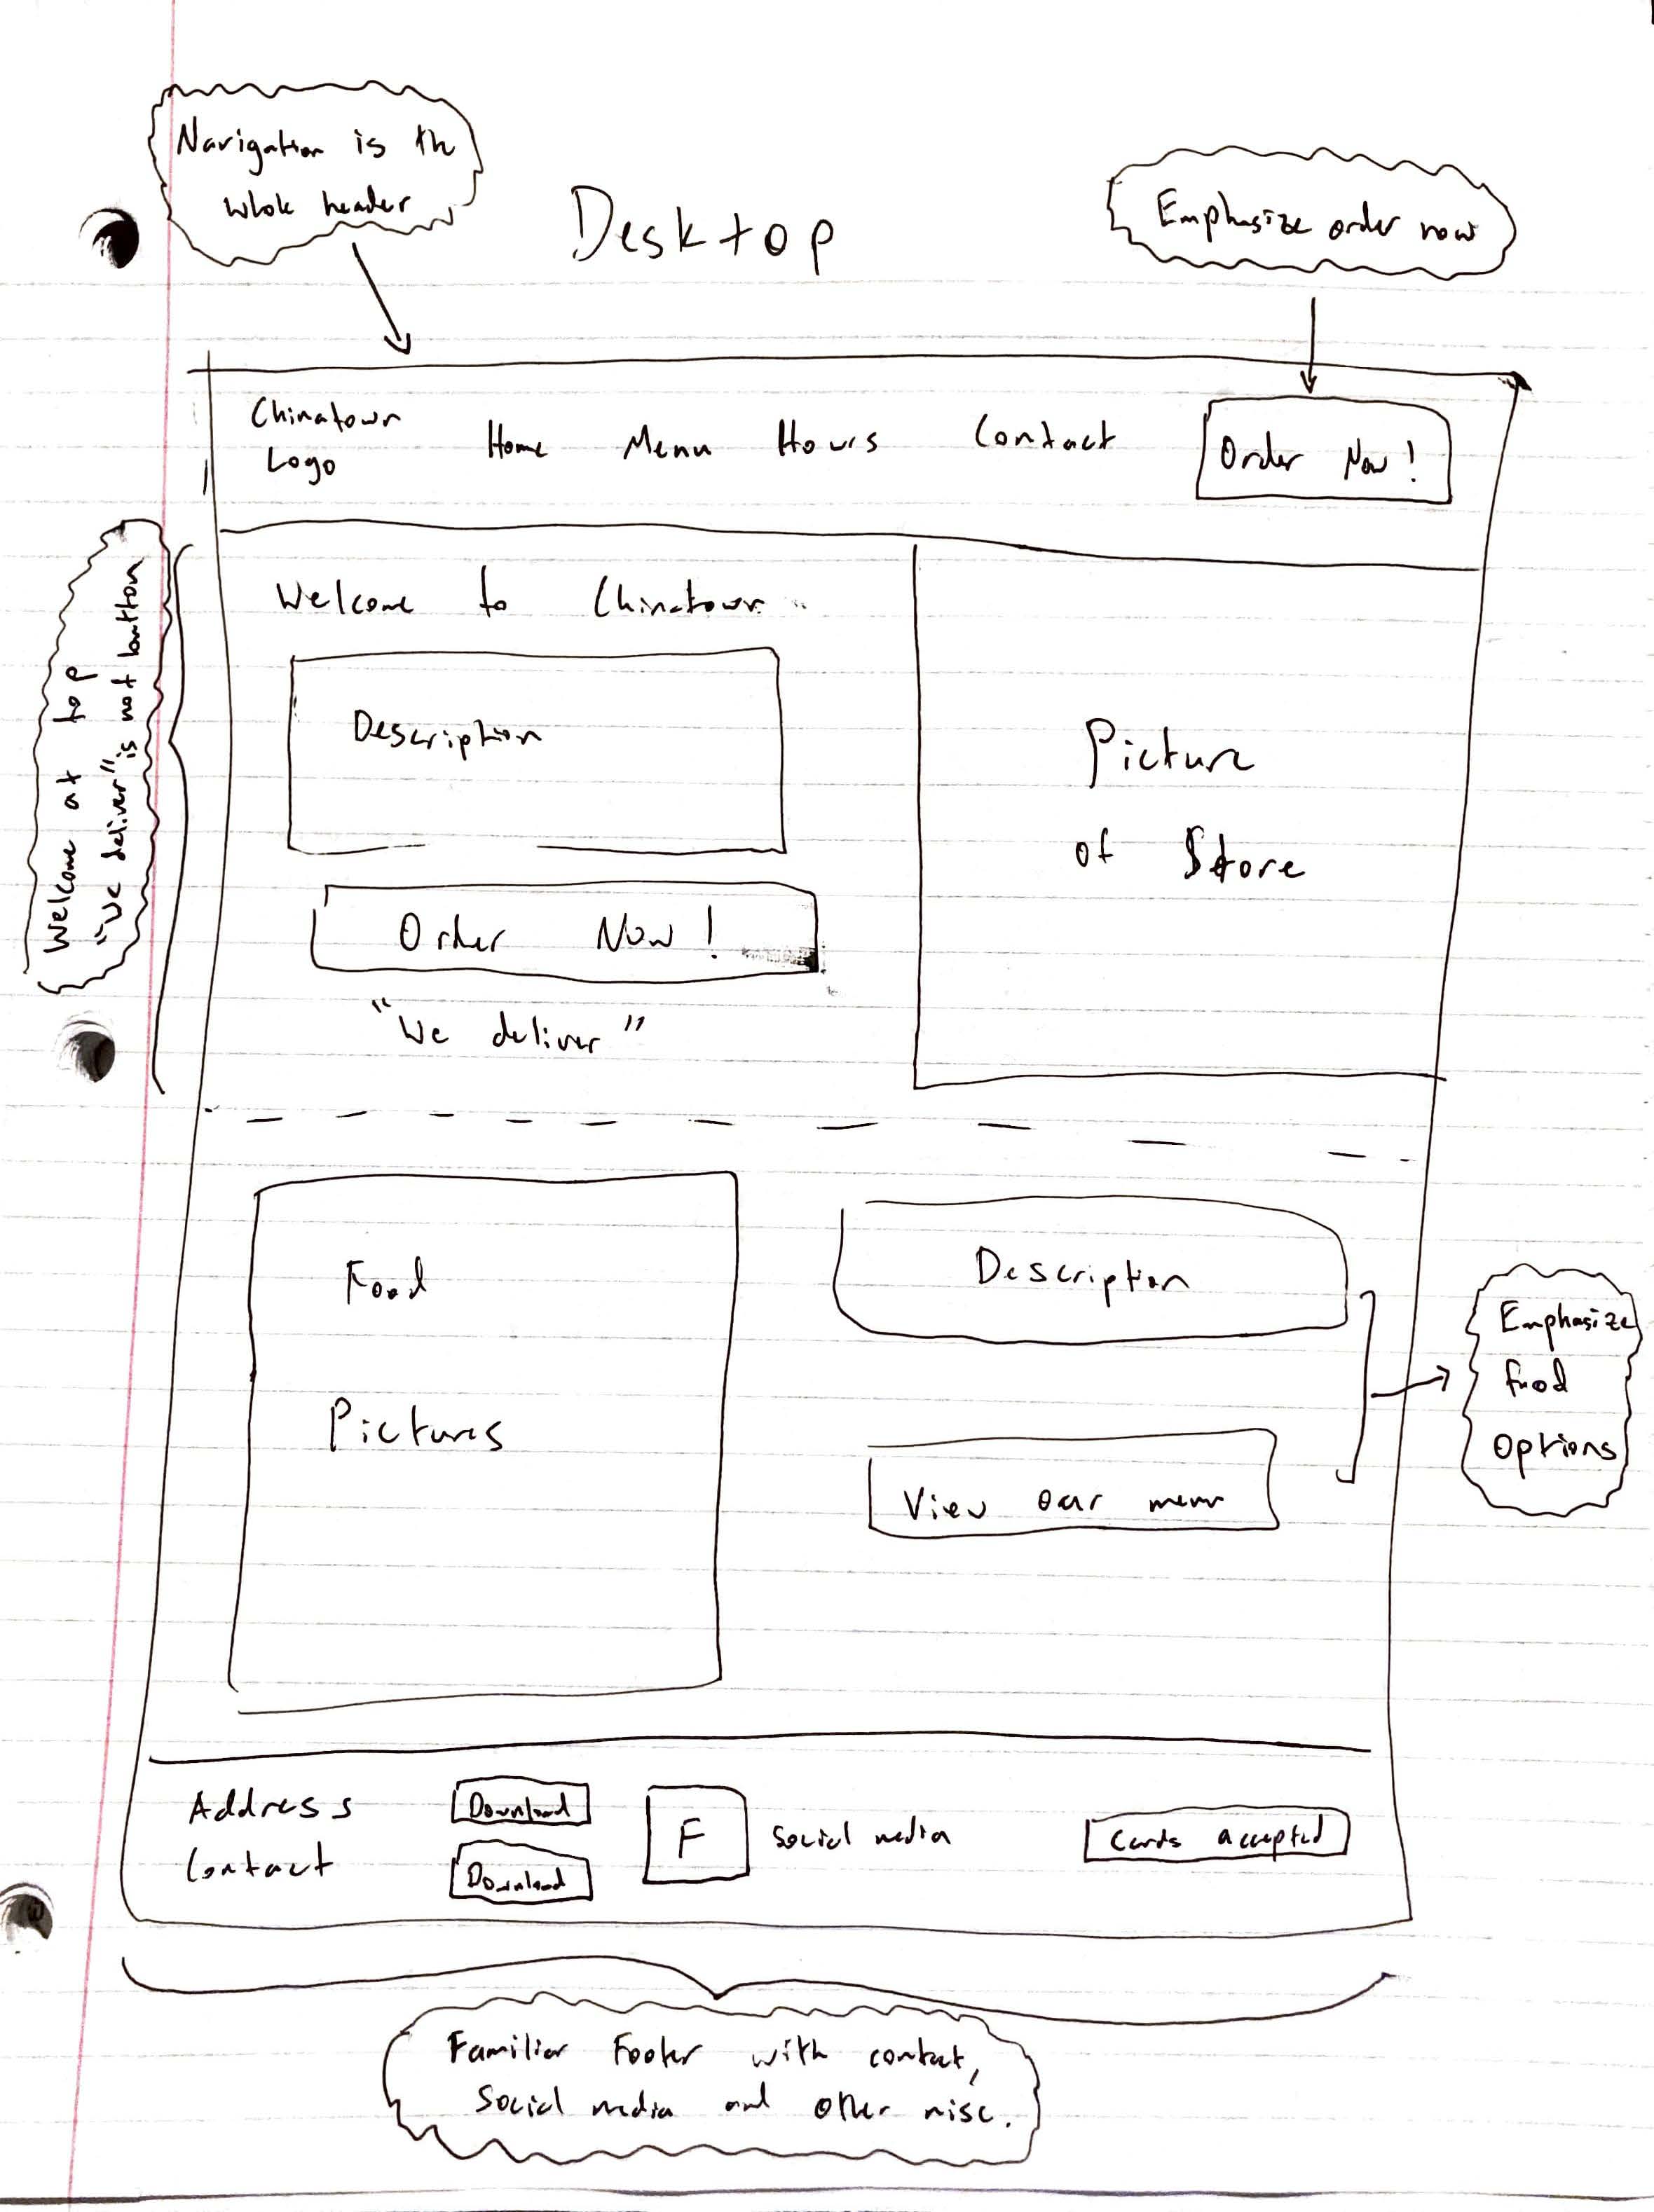 Navigation is the
whole header
Desktop
Emphasize order now
Chinatown
Logo
Home Menu Hours Contact
Order Now!
Welcome at top
"We deliver" is not button
Welcome to Chinatown
Description
Order Now!
"We deliver"
Picture
of Store
Food
Pictures
Description
View our menu
Emphasize
food
options
Address
Contact
Download
Download
F
Social media
Cards accepted
Familiar Footer with contact,
Social media and other misc.